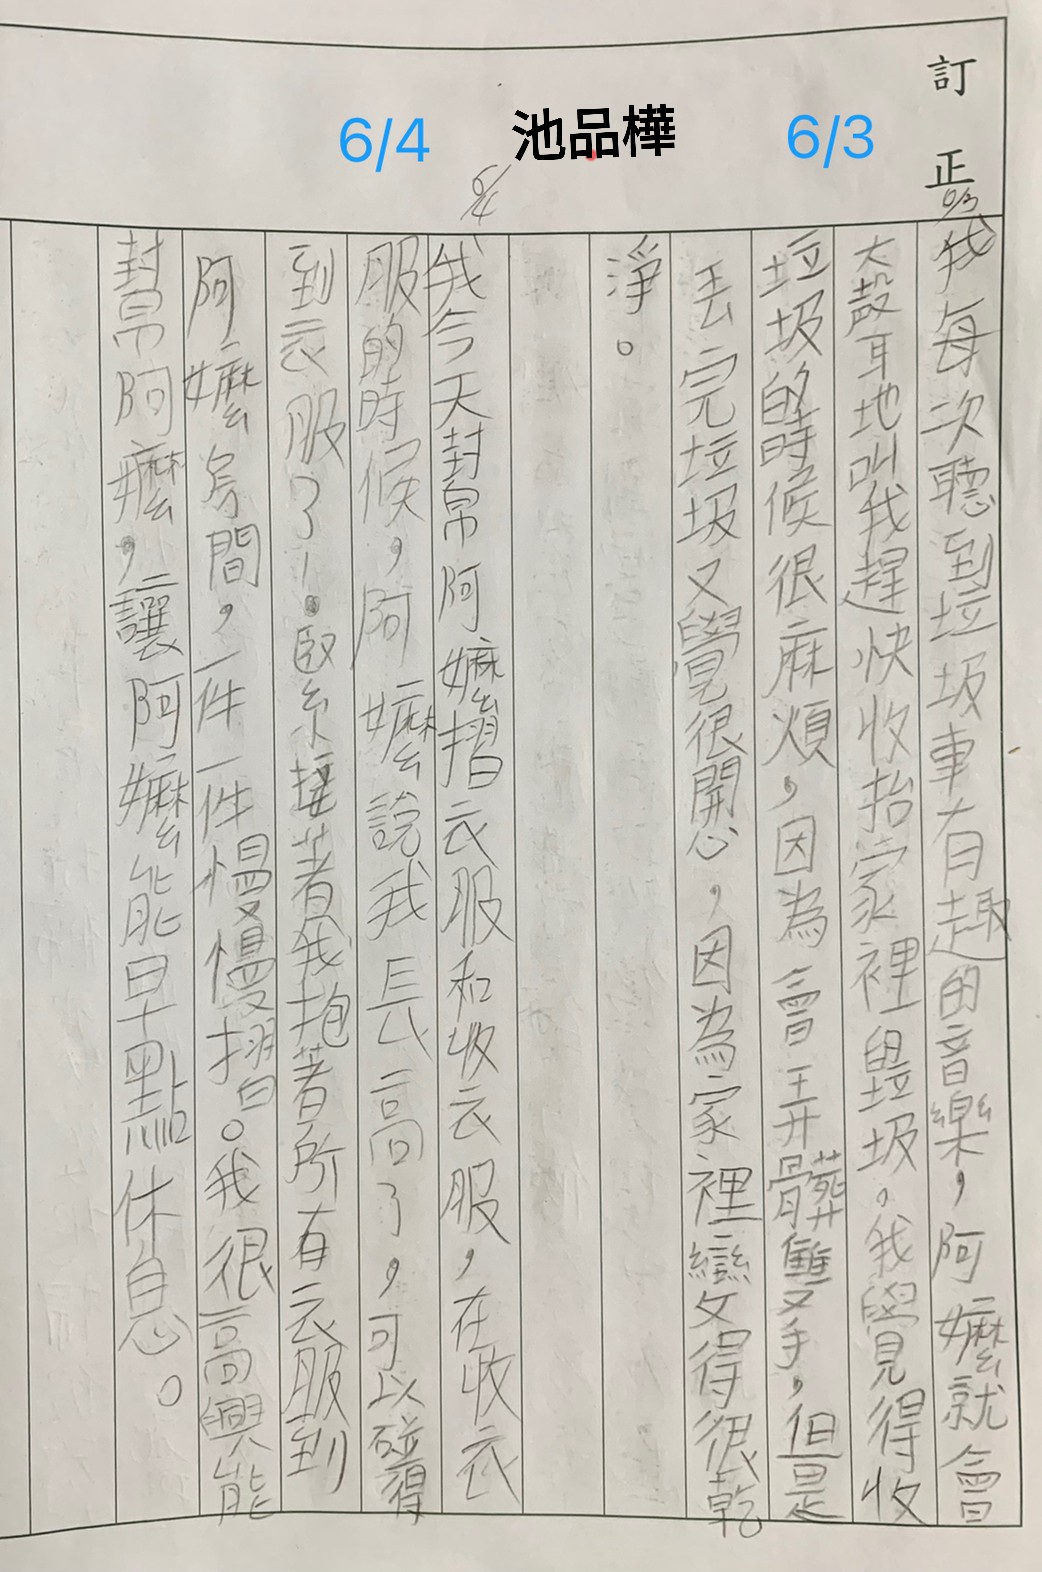 訂正
6/3
池品樺
6/4
6/3
我每次聽到垃圾車有趣的音樂，阿嬤就會
大聲地叫我趕快收拾家裡垃圾。我覺得收
垃圾的時候很麻煩，因為會弄髒雙手，但是
丟完垃圾又覺很開心，因為家裡變得很乾
淨。
6/4
我今天幫阿嬤摺衣服和收衣服，在收衣
服的時候，阿嬤說我長高了，可以碰得
到衣服了！緊接著我抱著所有衣服到
阿嬤房間，一件一件慢慢摺。我很高興能
幫阿嬤，讓阿嬤能早點休息。